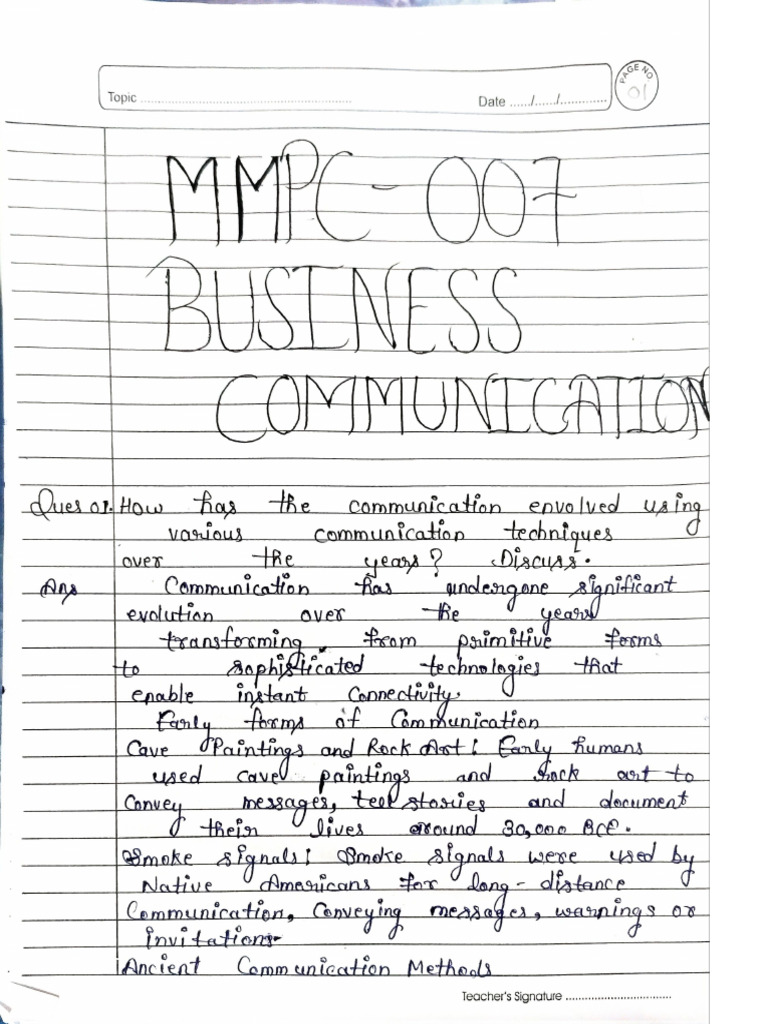 Topic
Date ....../....../.............
PAGE NO
01
MMPC-007
BUSINESS
COMMUNICATION
Ques 01. How has the communication envolved using
various communication techniques
over the years? Discuss.
Ans Communication has undergone significant
evolution over the years
transforming from primitive forms
to sophisticated technologies that
enable instant connectivity.
Early forms of Communication
Cave Paintings and Rock Art: Early humans
used cave paintings and rock art to
Convey messages, tell stories and document
their lives around 30,000 BCE.
Smoke signals: Smoke signals were used by
Native Americans for long-distance
Communication, Conveying messages, warnings or
invitations.
Ancient Communication Methods
Teacher's Signature